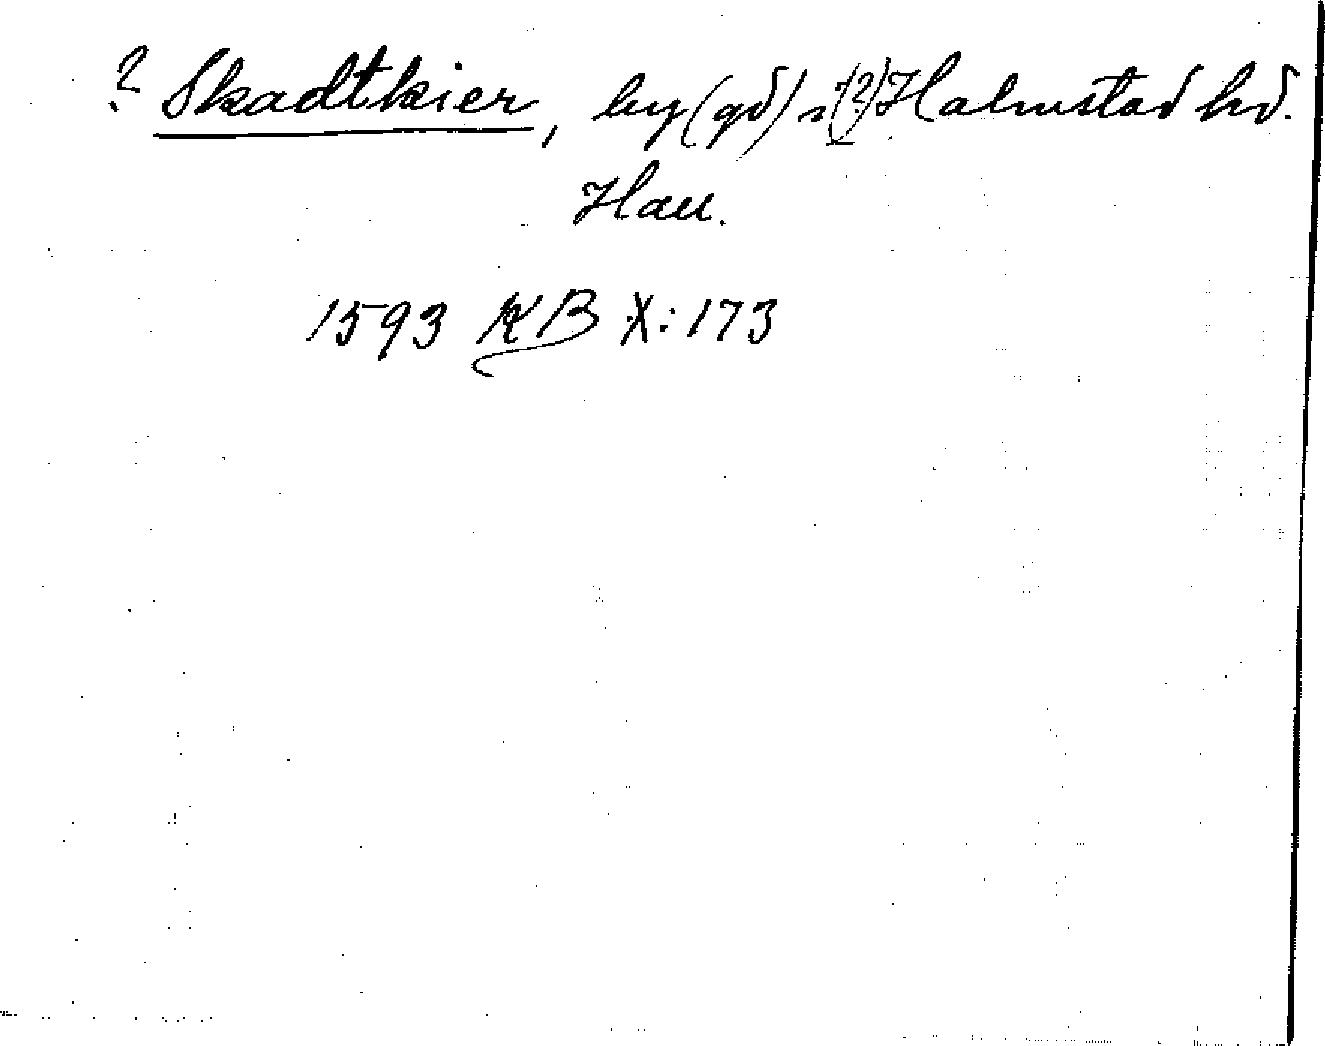 ? Skadtkier, by (gd) i (?) Halmstad hd.
Hall.
1593 KB X: 173